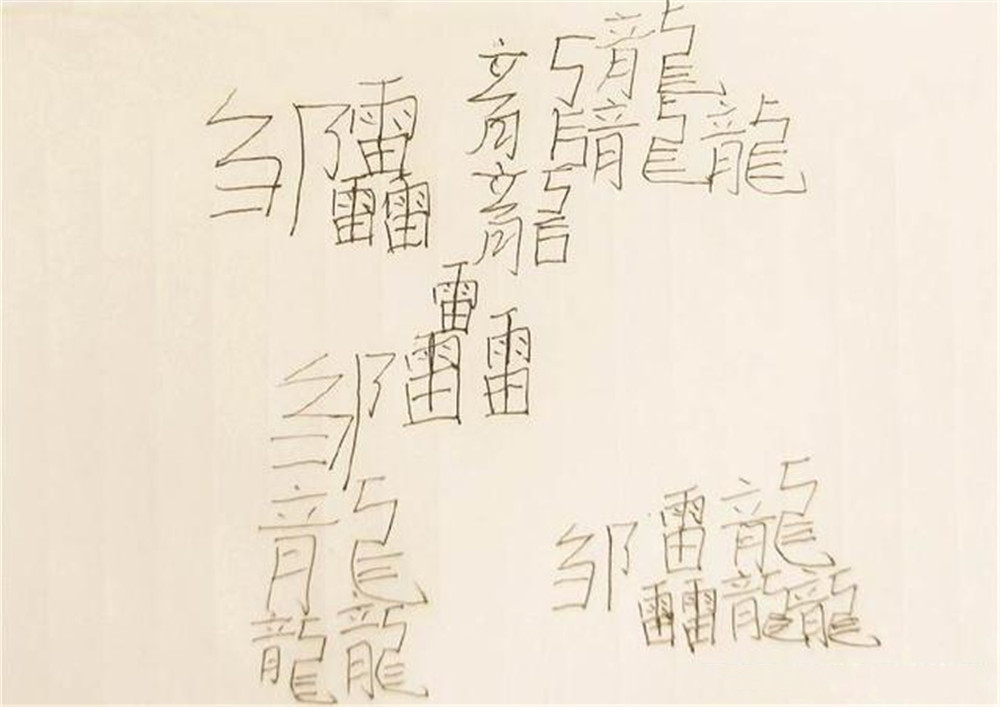 邹靐龍龘
龍
邹靐
龘
邹靐龘